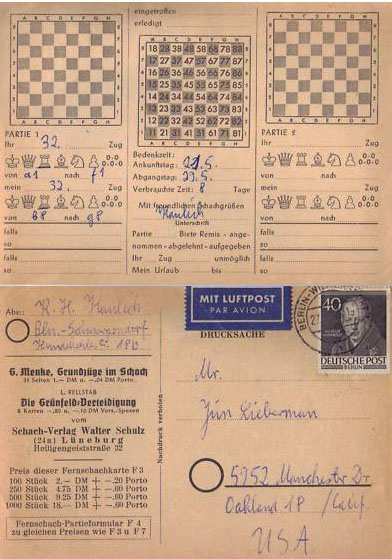 A B C D E F G H
eingetroffen
erledigt
A B C D E F G H
18 28 38 48 58 68 78 88
17 27 37 47 57 67 77 87
16 26 36 46 56 66 76 86
15 25 35 45 55 65 75 85
14 24 34 44 54 64 74 84
13 23 33 43 53 63 73 83
12 22 32 42 52 62 72 82
11 21 31 41 51 61 71 81
PARTIE 1
Ihr 32. Zug
0-0 0-0-0
von a1 nach f1
mein 32. Zug
0-0 0-0-0
von b8 nach g8
falls
so
falls
so
Bedenkzeit:
Ankunftstag: 21.5.
Abgangstag: 29.5.
Verbrauchte Zeit: 8 Tage
Mit freundlichen Schachgrüßen
Unterschrift
Partie Biete Remis - ange-
nommen - abgelehnt - aufgegeben
Ihr Zug unmöglich
Mein Urlaub bis
PARTIE 2
Ihr Zug
0-0 0-0-0
von nach
mein Zug
0-0 0-0-0
von nach
falls
so
falls
so
Abs: K. H.
G. Menke, Grundzüge im Schach
L. RELLSTAB
Die Grünfeld-Verteidigung
vom
Schach-Verlag Walter Schulz
(24a) Lüneburg
Heiligengeiststraße 32
Preis dieser Fernschachkarte F 3
100 Stück 2.— DM + —.20 Porto
250 Stück 4.75 DM + —.60 Porto
500 Stück 9.25 DM + —.60 Porto
1000 Stück 18.— DM + —.60 Porto
Fernschach-Partieformular F 4
zu gleichen Preisen wie F 3 u F 7
Nachdruck verboten
MIT LUFTPOST
PAR AVION
DRUCKSACHE
40
DEUTSCHE POST
BERLIN
Mr.
Jim Lieberman
5952 Manchester Dr
Oakland 18 / Calif.
USA